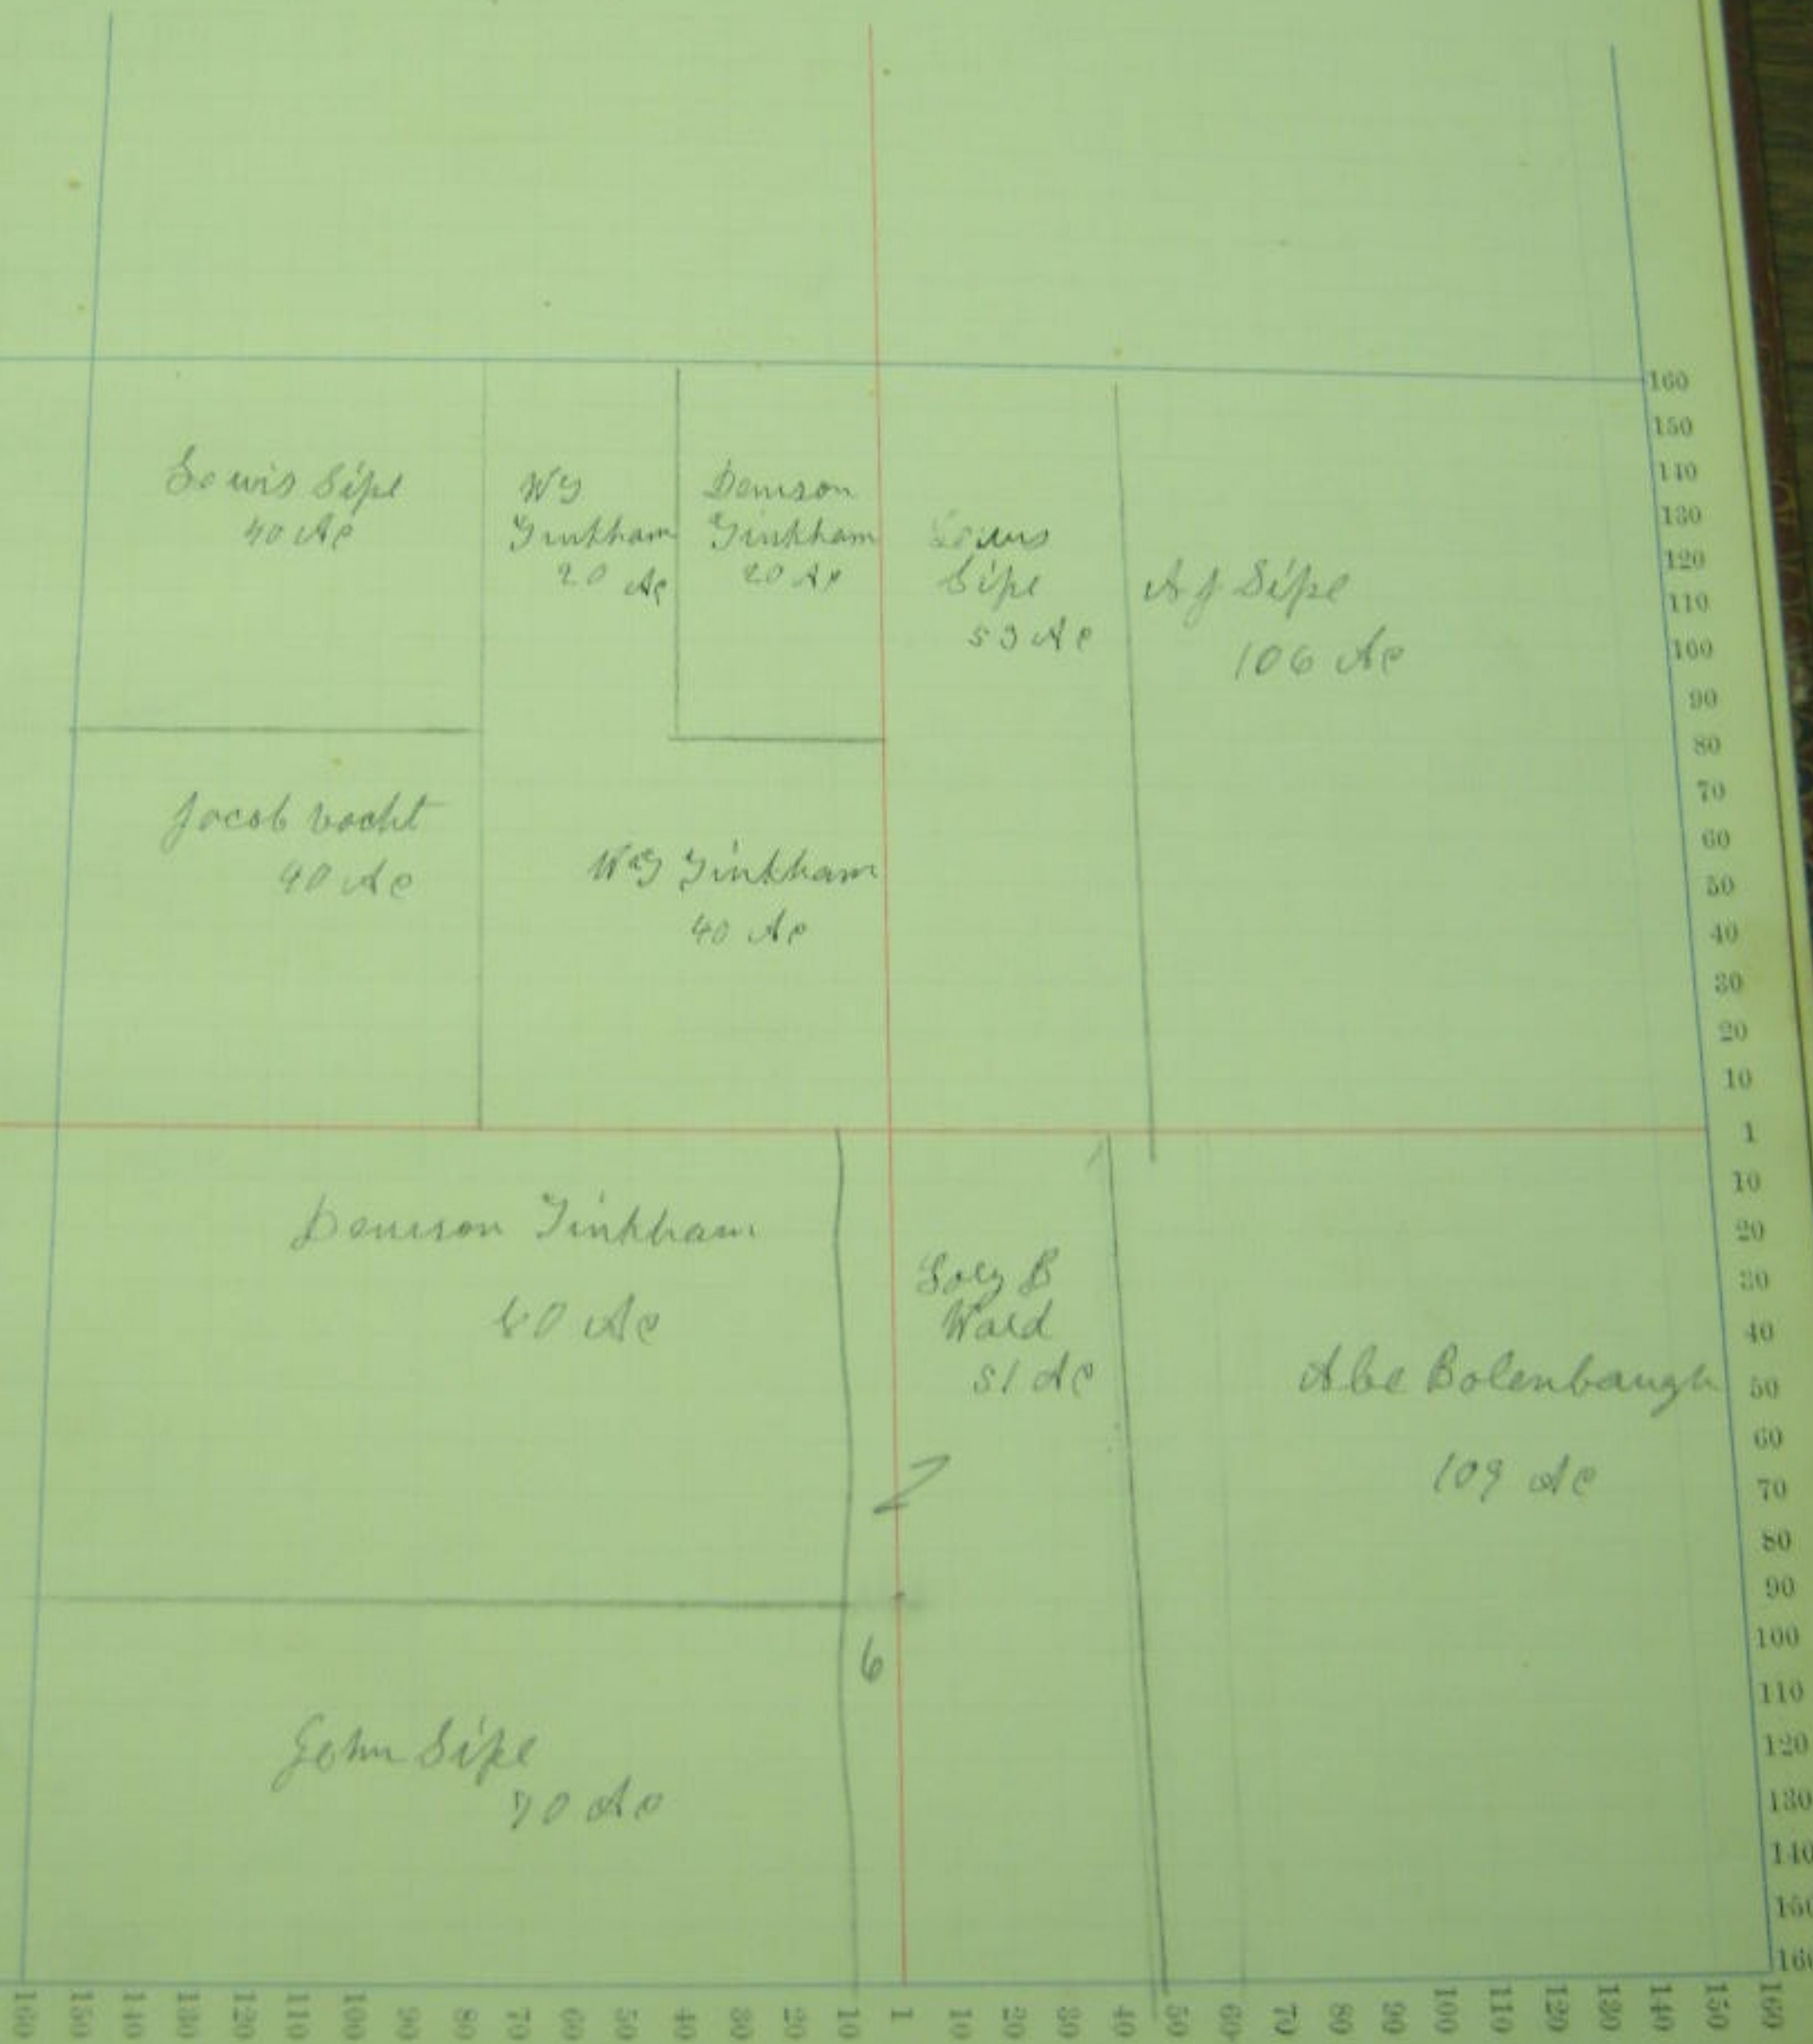 Lewis Sipe
40 Ac
WG
Tinkham
20 Ac
Denison
Tinkham
20 Ac
Lewis
Sipe
53 Ac
AJ Sipe
106 Ac
Jacob Vocht
40 Ac
WG Tinkham
40 Ac
Denison Tinkham
80 Ac
B
Ward
51 Ac
Abe Bolenbaugh
109 Ac
6
John Sipe
70 Ac
160
150
140
130
120
110
100
90
80
70
60
50
40
30
20
10
1
10
20
30
40
50
60
70
80
90
100
110
120
130
140
150
160
160 150 140 130 120 110 100 90 80 70 60 50 40 30 20 10 1 10 20 30 40 50 60 70 80 90 100 110 120 130 140 150 160